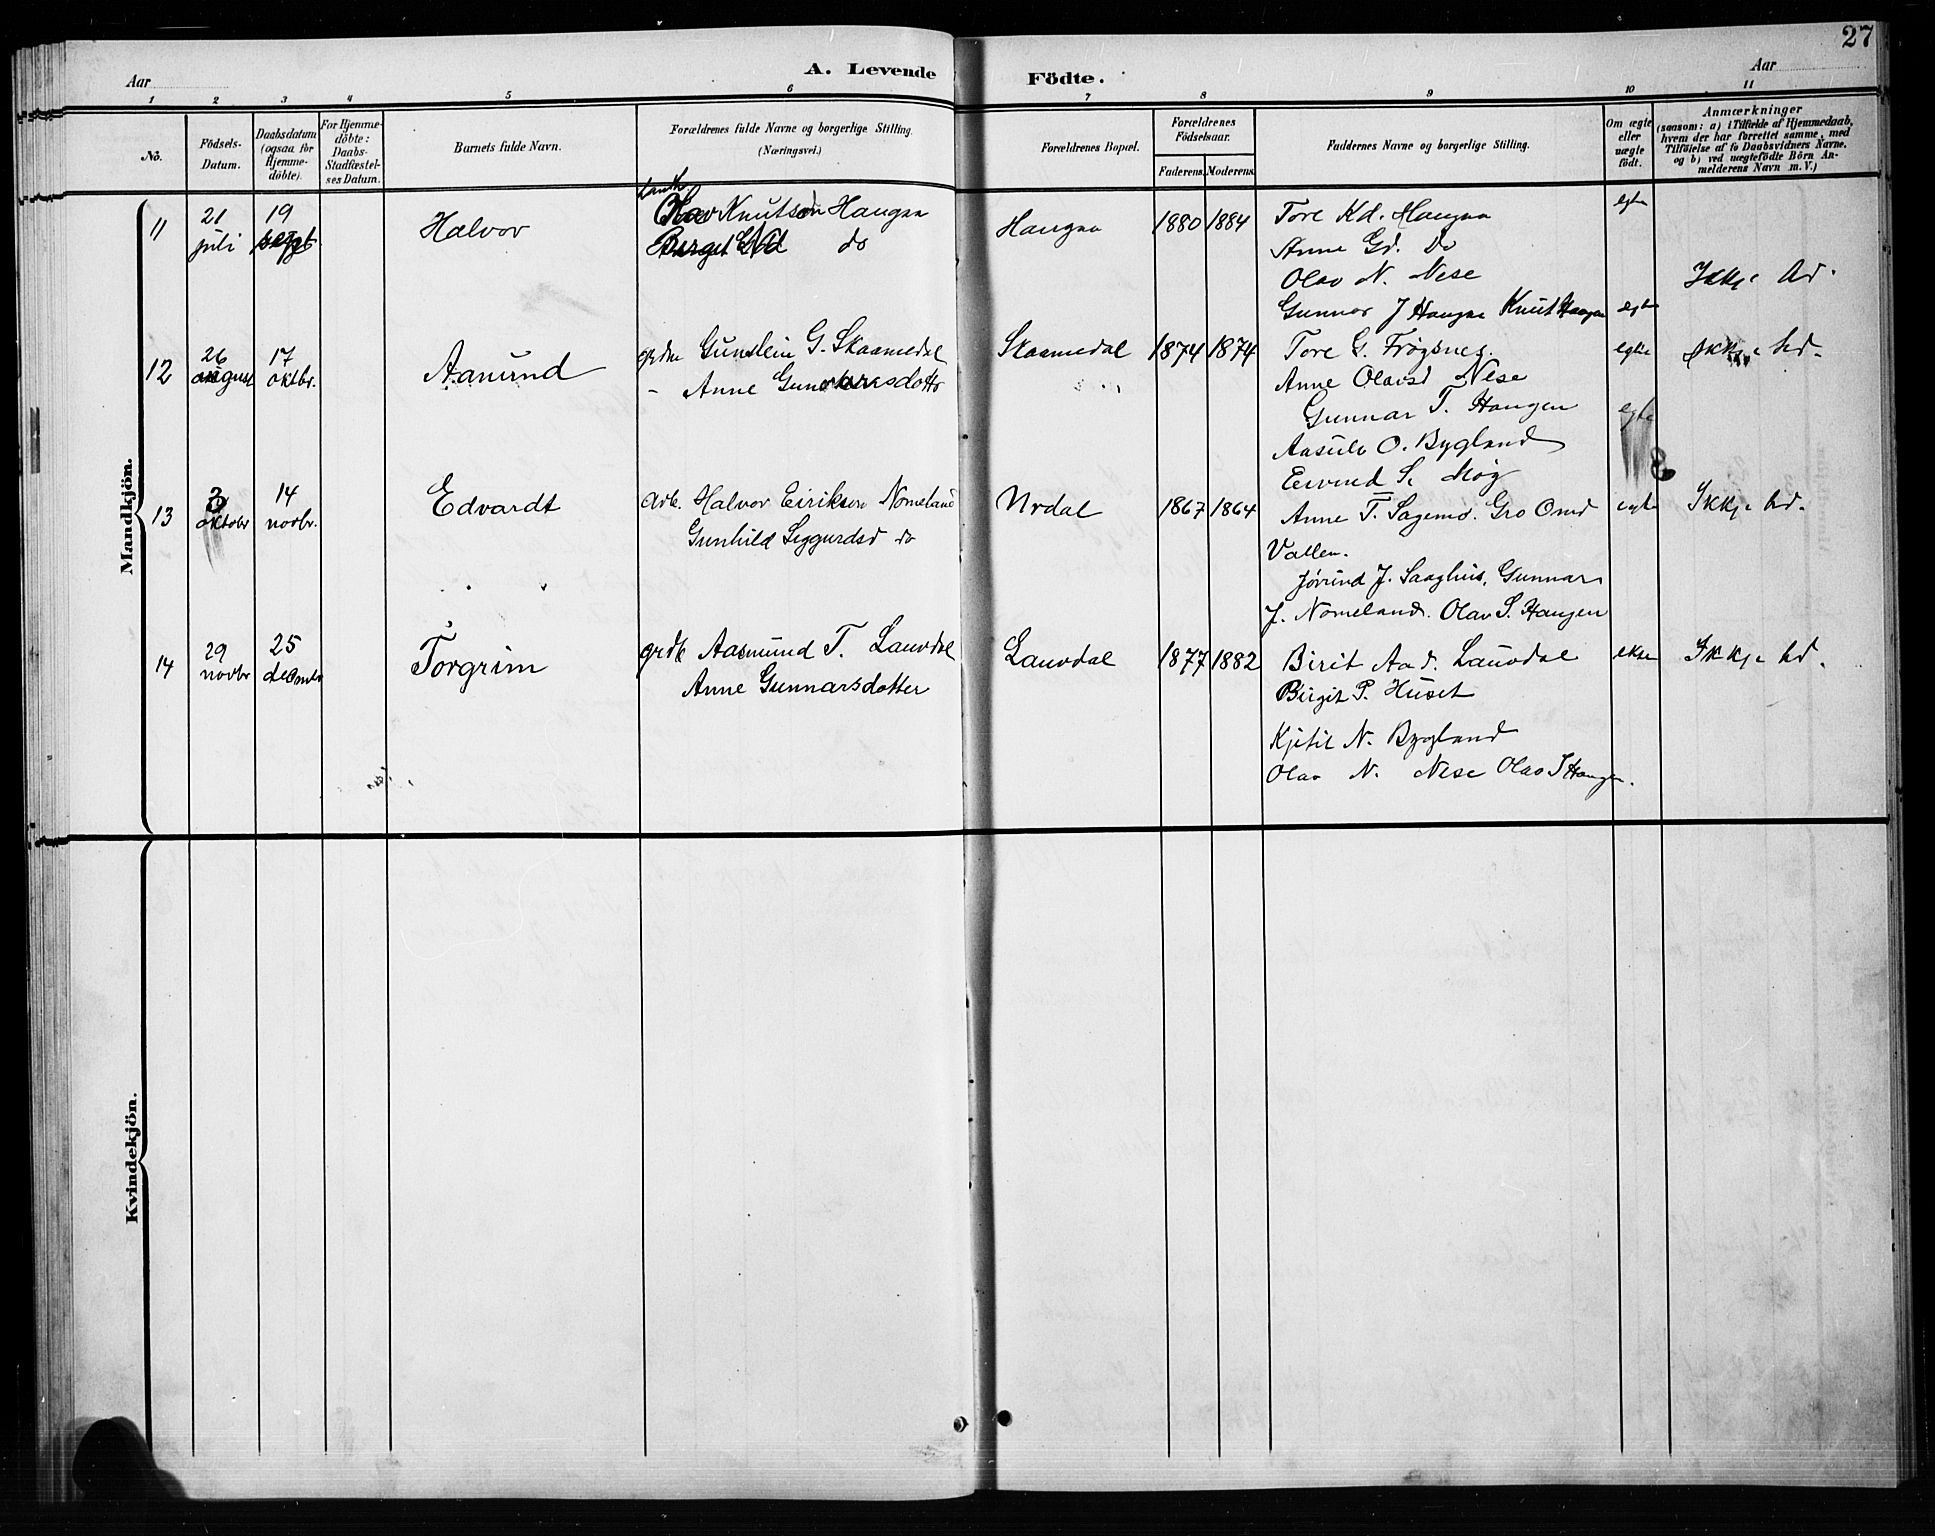 27
Aar
A. Levende Födte.
Aar
1 2 3 4 5 6 7 8 9 10 11
No.
Födsels-
Datum.
Daabsdatum
(ogsaa for
Hjemme-
döbte).
For Hjemme-
döbte:
Daabs-
Stadfæstel-
ses Datum.
Barnets fulde Navn.
Forældrenes fulde Navne og borgerlige Stilling.
(Næringsvei.)
Forældrenes Bopæl.
Forældrenes
Födselsaar.
Faderens. Moderens.
Faddernes Navne og borgerlige Stilling.
Om ægte
eller
uægte
født.
Anmærkninger
(saasom: a) i Tilfælde af Hjemmedaab,
hvem der har forrettet samme, med
Tilföielse af to Daabsvidners Navne.
og b) ved uægtefödte Börn An-
melderens Navn m. V.)
Mandkjön.
11
21
juli
19
septbr
Halvor
Olav Knutson Haugaa
do
Haugaa
1880 1884
Tore Kd. Haugaa
Anne Gd. Do
Olav N. Nese
Gunnar J Haugaa Knut Haugen
egte
egte
Ikkje hd.
12
26
august
17
oktbr.
Aanund
grdm Gunstein G. Skaamedal
- Anne Gunnarsdottr
Skaamedal
1874 1874
Tore G. Frøysnes.
Anne Olavsd Nese
Gunnar T. Haugen
Aasulv O. Bygland
Eivind S. Møg
egte
egte
Ikkje hd.
13
3
oktobr
14
novbr.
Edvardt
arb. Halvor Eirikson Nomeland
Gunhild Siggurdsd do
Urdal
1867 1864
Anne T. Sagemo. Gro Omd
Vallen.
Jórund J. Saaghus, Gunnar
J. Nomeland. Olav S. Haugen
egte
Ikkje hd.
14
29
novbr
25
decmbr
Torgrim
grdb Aasmund T. Lauvdal
Anne Gunnarsdotter
Lauvdal
1877 1882
Birit Aad. Lauvdal
Birgit P. Huset
Kjetil N. Bygland
Olav N. Nese Olav S Haugen.
ekte
Ikkje hd.
Kvindekjön.